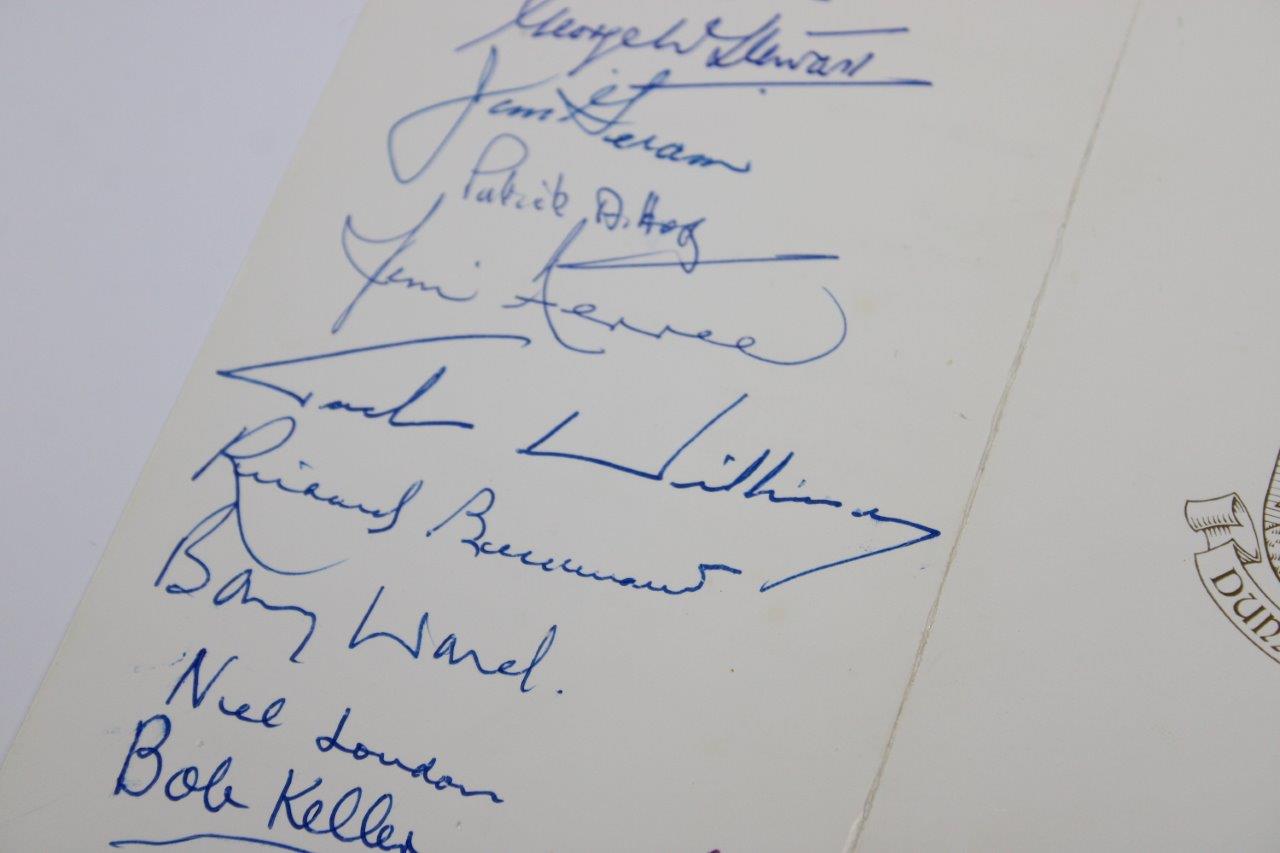 George W Stewart
Jim
Patrick A. Hog
Jim Ferree
Jack Williams
Richard
Barry Ward.
Neil London
Bob Keller
DUN